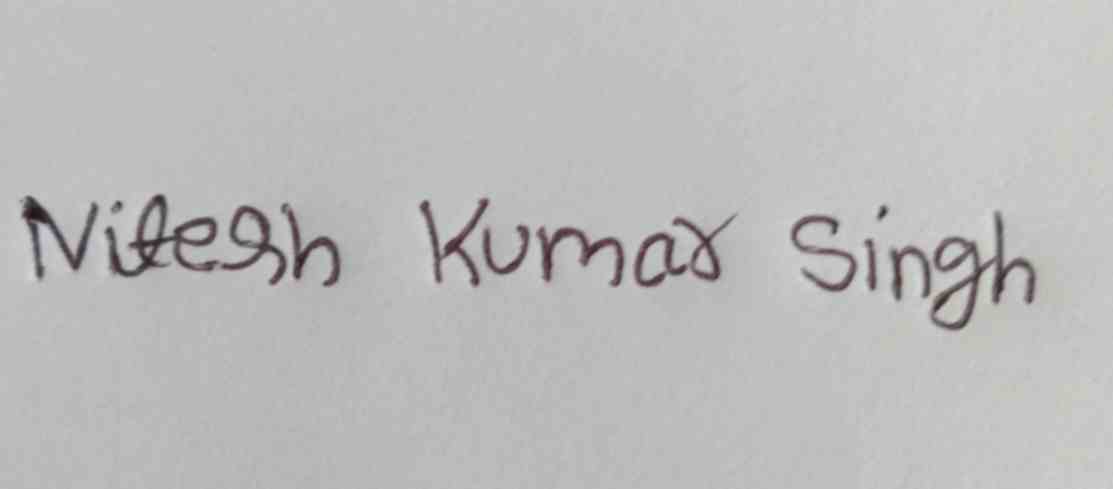 Nitesh Kumar Singh